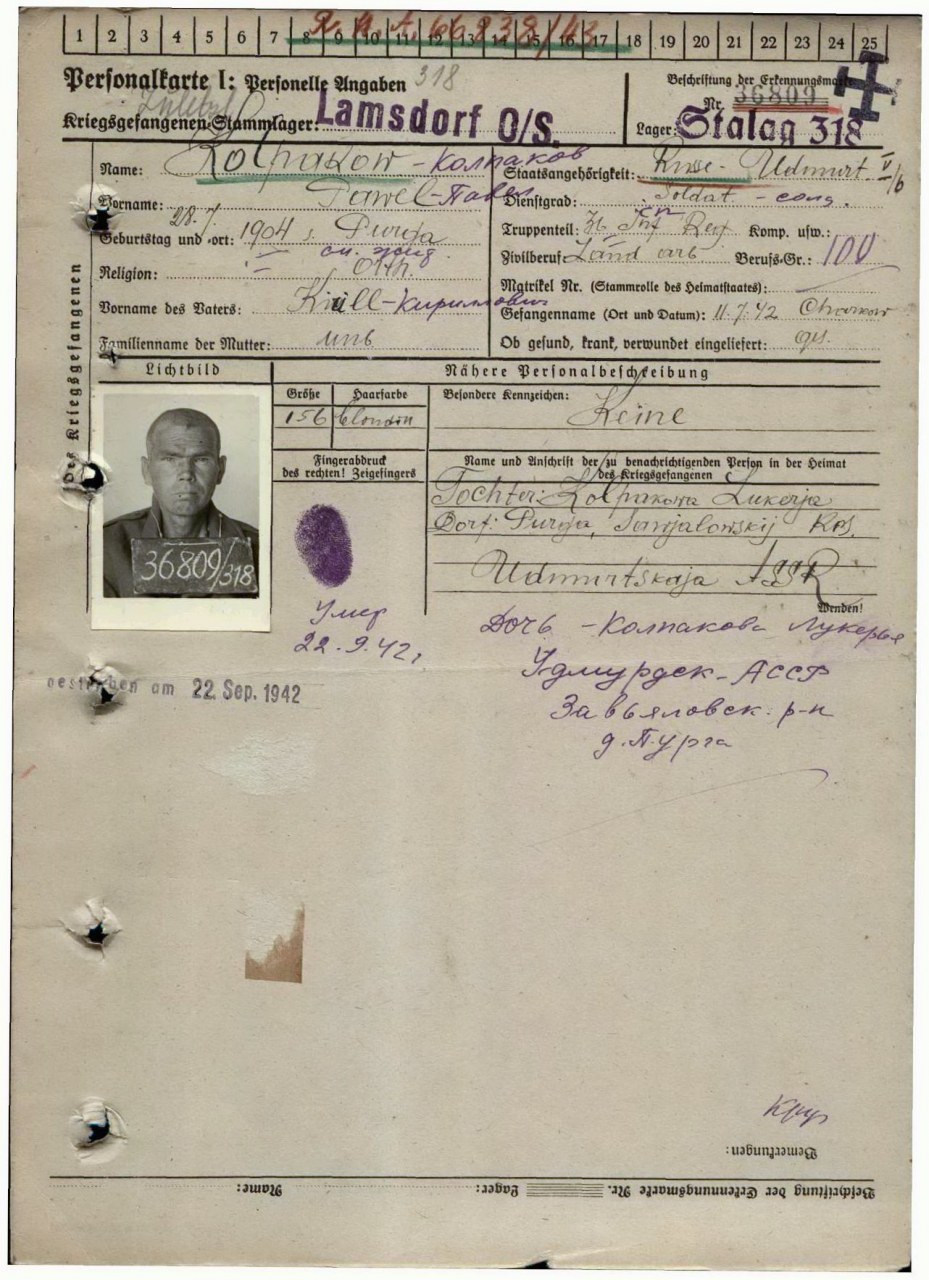 1 2 3 4 5 6 7 8 9 10 11 12 13 14 15 16 17 18 19 20 21 22 23 24 25
R.K.A. 66838/43
Personalkarte I: Personelle Angaben 318
Beschriftung der Erkennungsmarke
Nr. 36809
Kriegsgefangenen-Stammlager: Lamsdorf O/S.
Lager: Stalag 318
Des Kriegsgefangenen
Name: Kolpakow - Колпаков
Staatsangehörigkeit: Russe - Udmurt
Vorname: Pawel - Павел
Dienstgrad: Soldat - солд.
Geburtstag und -ort: 28.7. 1904 Purga
Truppenteil: Komp. usw.:
Zivilberuf: Land arb Berufs-Gr.: 100
Religion: Orth.
Matrikel Nr. (Stammrolle des Heimatstaates):
Vorname des Vaters: Kirill - Кириллович
Gefangenname (Ort und Datum): 11.7.42 Charkow
Familienname der Mutter: unb
Ob gesund, krank, verwundet eingeliefert: ges.
Lichtbild
Nähere Personalbeschreibung
Größe Haarfarbe
Besondere Kennzeichen: Keine
156 blondin
Fingerabdruck
des rechten! Zeigefingers
Name und Anschrift der zu benachrichtigenden Person in der Heimat
des Kriegsgefangenen
Tochter: Kolpakowa Lukerja
Dorf: Purga, Sawjalowskij Rps.
Udmurtskaja ASSR
36809/318
Wenden!
Умер
22.9.42г
Дочь - Колпакова Лукерья
Удмурдск - АССР
Завьяловск. р-н
д. Пурга
gestorben am 22. Sep. 1942
Bemerkungen:
Beschriftung der Erkennungsmarke Nr. Lager: Name: